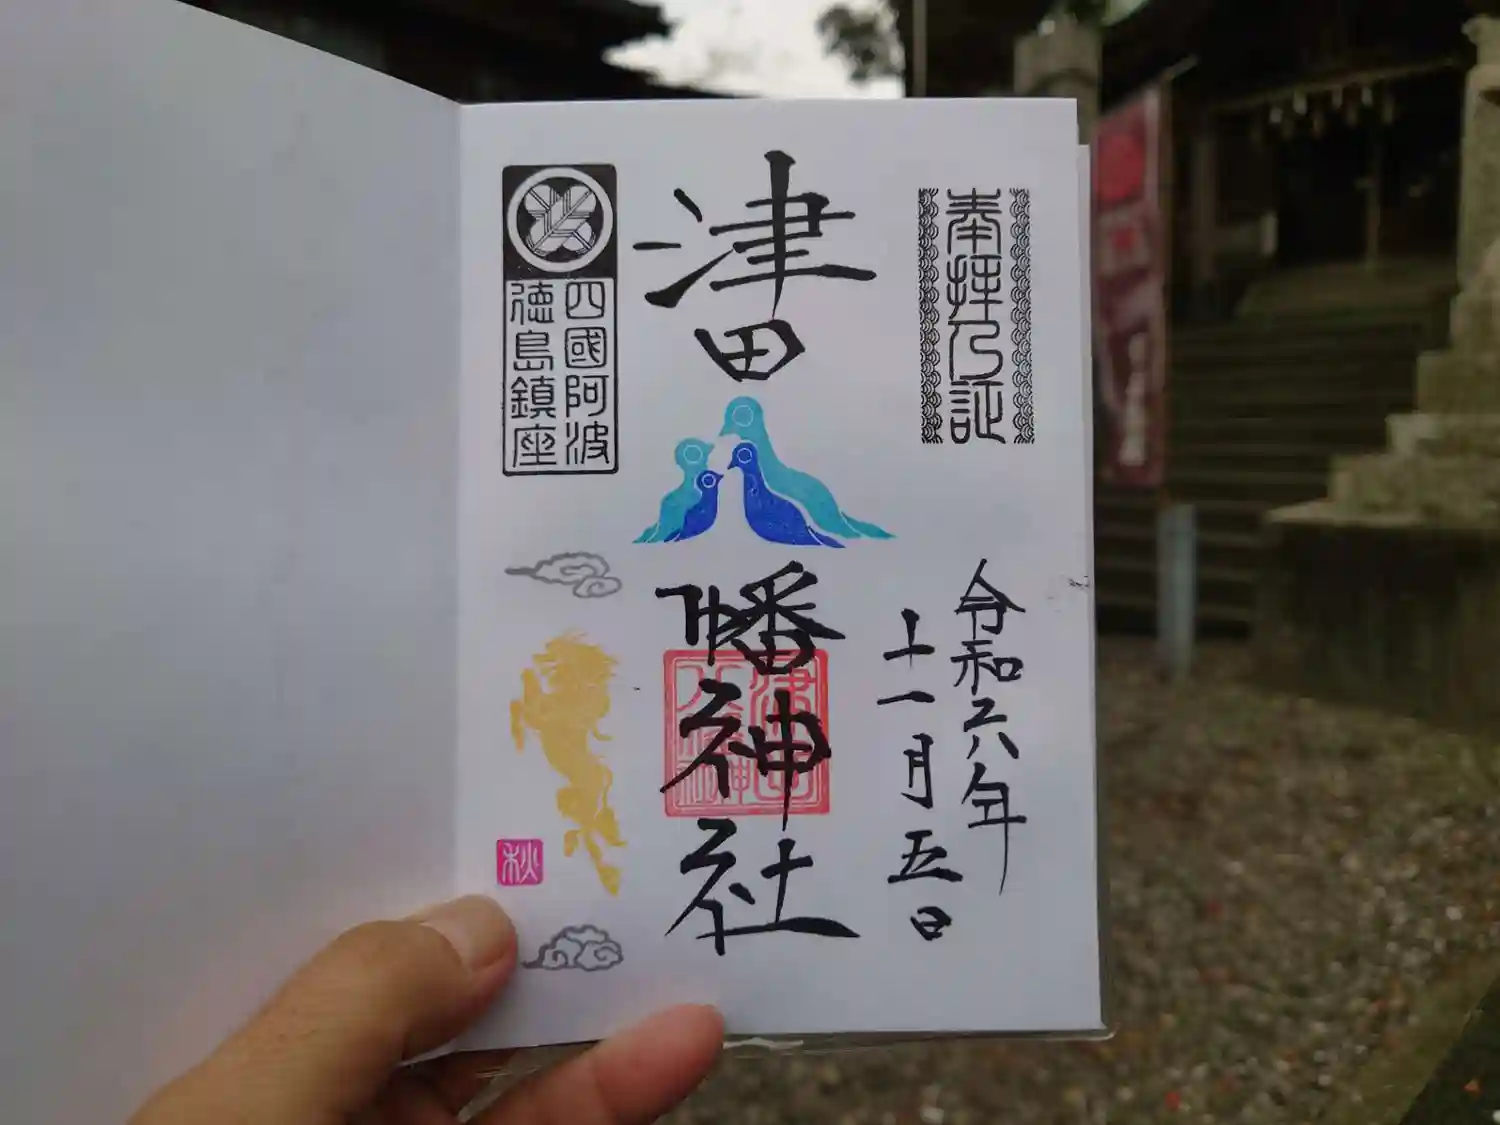 奉拝乃証
令和六年
十一月五日
津田
幡神社
津田
八幡
神社
四國阿波
徳島鎮座
秋